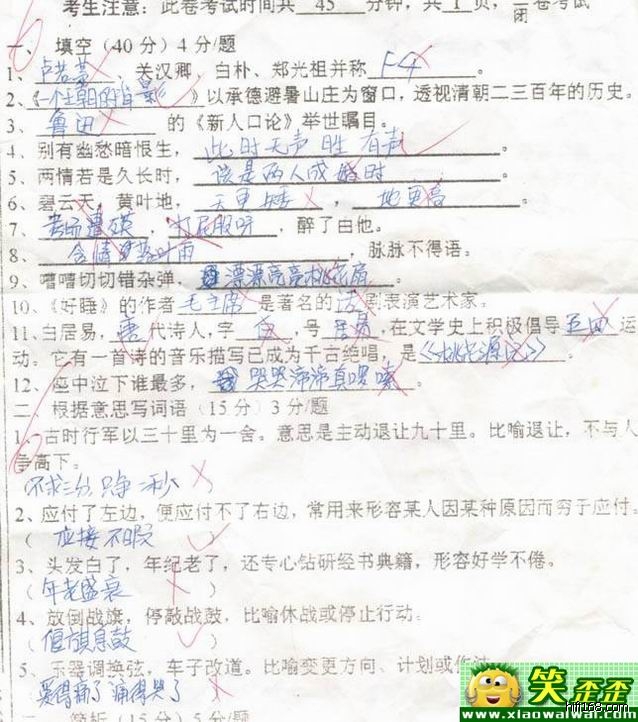 考生注意：此卷考试时间共 45 分钟，共 1 页，闭卷考试
一、填空（40分）4分/题
1、卢若蒡、关汉卿、白朴、郑光祖并称 F4 。
2、《一个王朝的背影》以承德避暑山庄为窗口，透视清朝二三百年的历史。
3、鲁迅 的《新人口论》举世瞩目。
4、别有幽愁暗恨生，此时无声胜有声
5、两情若是久长时，该是两人成婚时
6、碧云天，黄叶地，天更矮，地更高
7、 ，醉了白他。
8、含情 叶雨，脉脉不得语。
9、嘈嘈切切错杂弹，漂漂亮亮桃花眉。
10、《好睡》的作者 毛主席 是著名的话剧表演艺术家。
11、白居易，唐代诗人，字 白，号 居易，在文学史上积极倡导 五四 运
动。它有一首诗的音乐描写已成为千古绝唱，是《桃花源记》。
12、座中泣下谁最多，哭哭滴滴真啰嗦。
二、根据意思写词语（15分）3分/题
1、古时行军以三十里为一舍。意思是主动退让九十里。比喻退让，不与人
争高下。
（不求三分只争一秒）
2、应付了左边，便应付不了右边，常用来形容某人因某种原因而穷于应付。
（应接不暇）
3、头发白了，年纪老了，还专心钻研经书典籍，形容好学不倦。
（年老盛衰）
4、放倒战旗，停敲战鼓，比喻休战或停止行动。
（偃旗息鼓）
5、乐器调换弦，车子改道。比喻变更方向、计划或作法
爱得痛了痛得哭了
三、简析（15分）5分/题
笑歪歪
www.xiaowaiwai.com